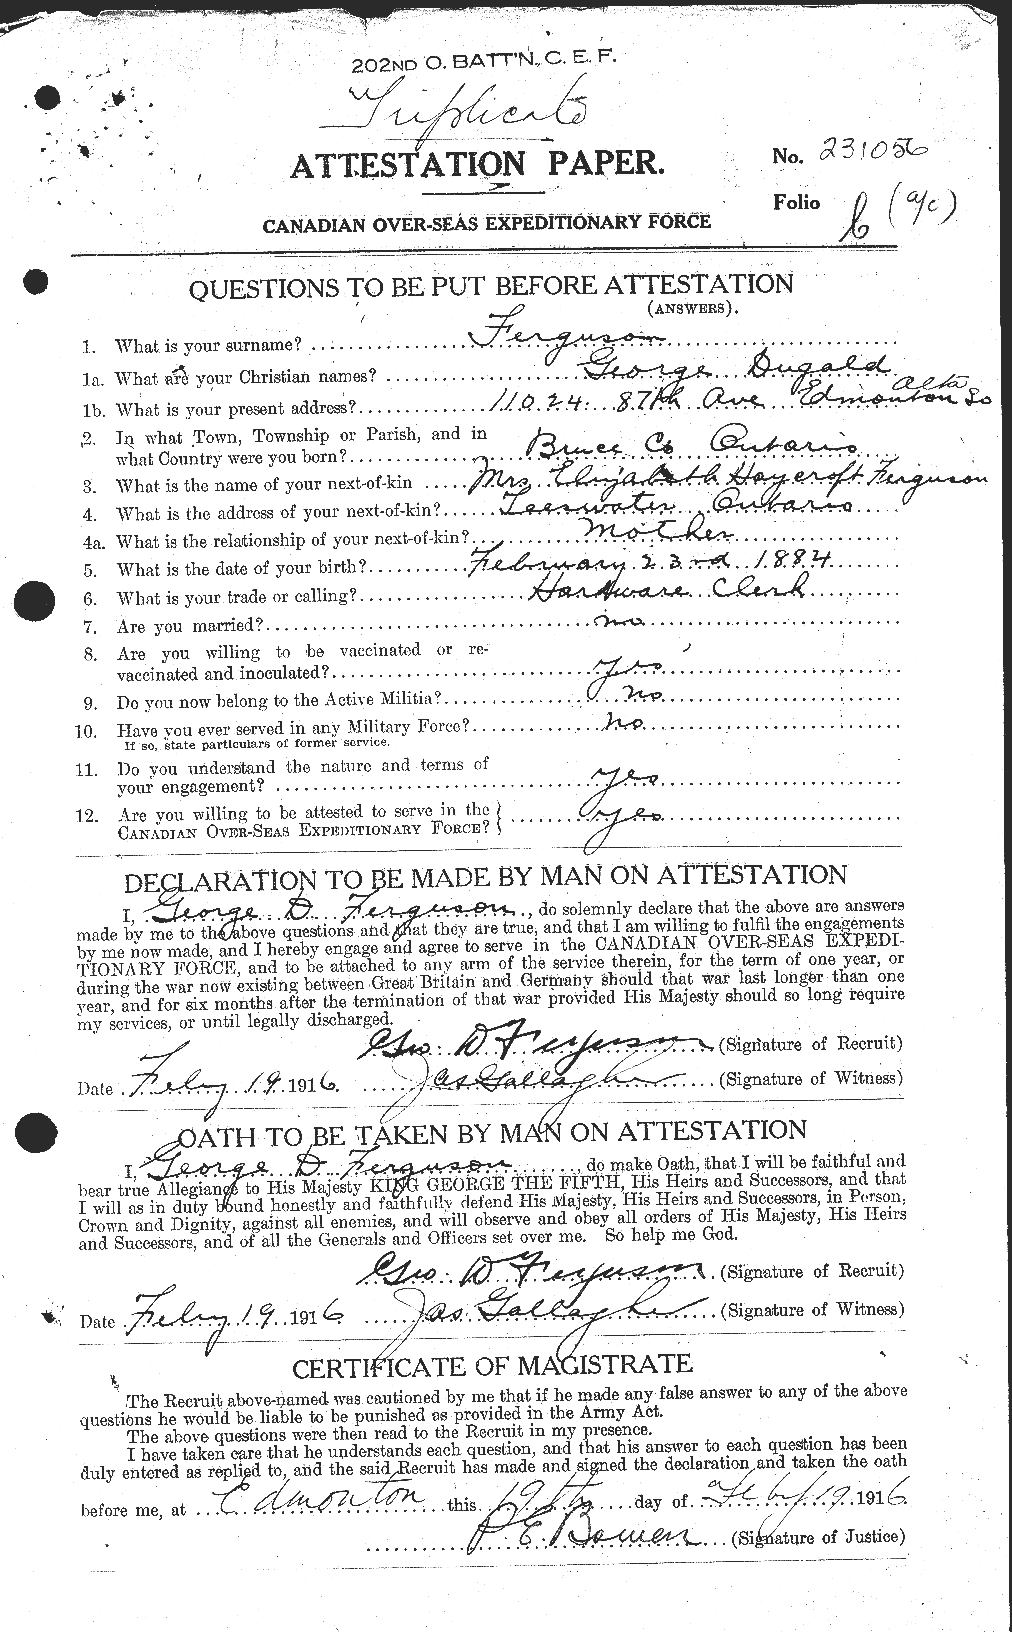 202ND O. BATT'N, C. E. F.
Triplicate
ATTESTATION PAPER.
No. 231056
Folio (a/c)
CANADIAN OVER-SEAS EXPEDITIONARY FORCE
QUESTIONS TO BE PUT BEFORE ATTESTATION
(ANSWERS).
1. What is your surname? Ferguson
1a. What are your Christian names? George Dugald
1b. What is your present address? 11024 87th Ave Edmonton So Alta
2. In what Town, Township or Parish, and in
what Country were you born? Bruce Co Ontario
3. What is the name of your next-of-kin Mrs Elizabeth Haycroft Ferguson
4. What is the address of your next-of-kin? Teeswater Ontario
4a. What is the relationship of your next-of-kin? Mother
5. What is the date of your birth? February 23rd 1884
6. What is your trade or calling? Hardware Clerk
7. Are you married? no
8. Are you willing to be vaccinated or re-
vaccinated and inoculated? yes
9. Do you now belong to the Active Militia? no
10. Have you ever served in any Military Force? no
If so, state particulars of former service.
11. Do you understand the nature and terms of
your engagement? yes
12. Are you willing to be attested to serve in the
CANADIAN OVER-SEAS EXPEDITIONARY FORCE? yes
DECLARATION TO BE MADE BY MAN ON ATTESTATION
I, George D Ferguson, do solemnly declare that the above are answers
made by me to the above questions and that they are true, and that I am willing to fulfil the engagements
by me now made, and I hereby engage and agree to serve in the CANADIAN OVER-SEAS EXPEDI-
TIONARY FORCE, and to be attached to any arm of the service therein, for the term of one year, or
during the war now existing between Great Britain and Germany should that war last longer than one
year, and for six months after the termination of that war provided His Majesty should so long require
my services, or until legally discharged.
Geo. D Ferguson (Signature of Recruit)
Date Feby 19 1916. Jas Gallagher (Signature of Witness)
OATH TO BE TAKEN BY MAN ON ATTESTATION
I, George D Ferguson, do make Oath, that I will be faithful and
bear true Allegiance to His Majesty KING GEORGE THE FIFTH, His Heirs and Successors, and that
I will as in duty bound honestly and faithfully defend His Majesty, His Heirs and Successors, in Person,
Crown and Dignity, against all enemies, and will observe and obey all orders of His Majesty, His Heirs
and Successors, and of all the Generals and Officers set over me. So help me God.
Geo. D Ferguson (Signature of Recruit)
Date Feby 19 1916 Jas Gallagher (Signature of Witness)
CERTIFICATE OF MAGISTRATE
The Recruit above-named was cautioned by me that if he made any false answer to any of the above
questions he would be liable to be punished as provided in the Army Act.
The above questions were then read to the Recruit in my presence.
I have taken care that he understands each question, and that his answer to each question has been
duly entered as replied to, and the said Recruit has made and signed the declaration and taken the oath
before me, at Edmonton this 19th day of Feby 19 1916.
P E Bowen (Signature of Justice)